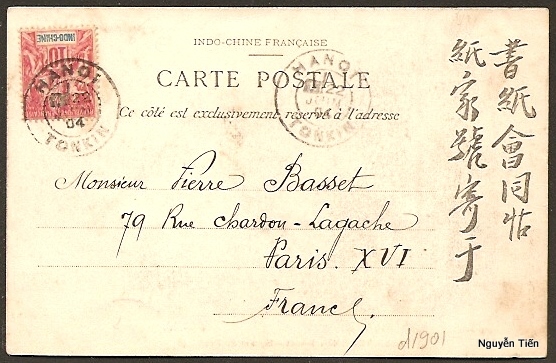 INDO-CHINE
10
HANOI
22
04
TONKIN
INDO-CHINE FRANÇAISE
CARTE POSTALE
Ce côté est exclusivement réservé à l'adresse
HANOI
22
JUIN
04
TONKIN
Monsieur Pierre Basset
79 Rue Chardon-Lagache
Paris. XVI
France
書紙會同帖
紙家號寄于
d1901
Nguyễn Tiến